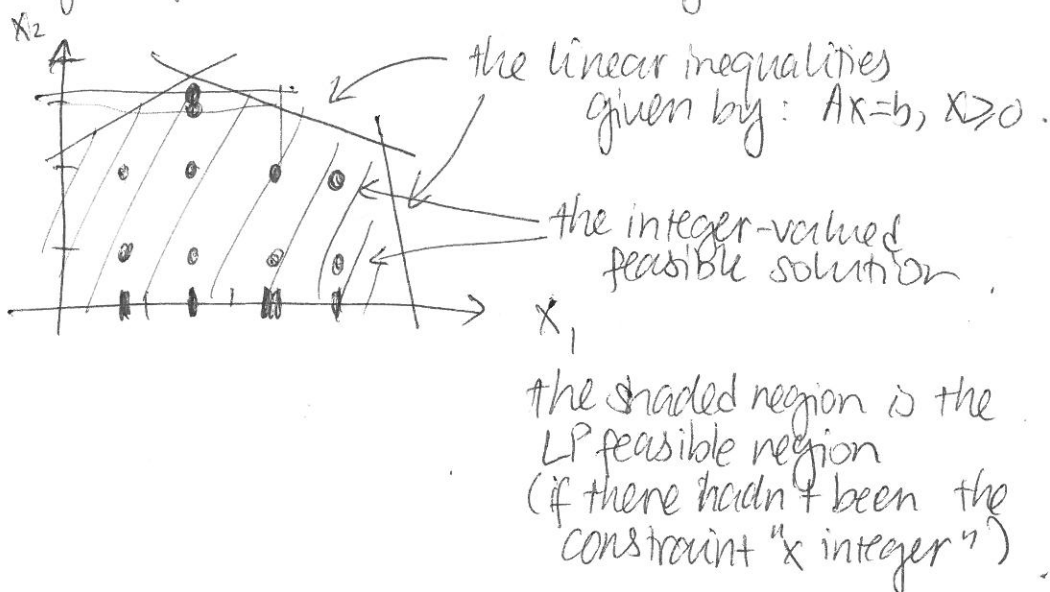 x₂
the linear inequalities
given by: Ax=b, x≥0.
the integer-valued
feasible solution.
x₁
the shaded region is the
LP feasible region
(if there hadn't been the
constraint "x integer").